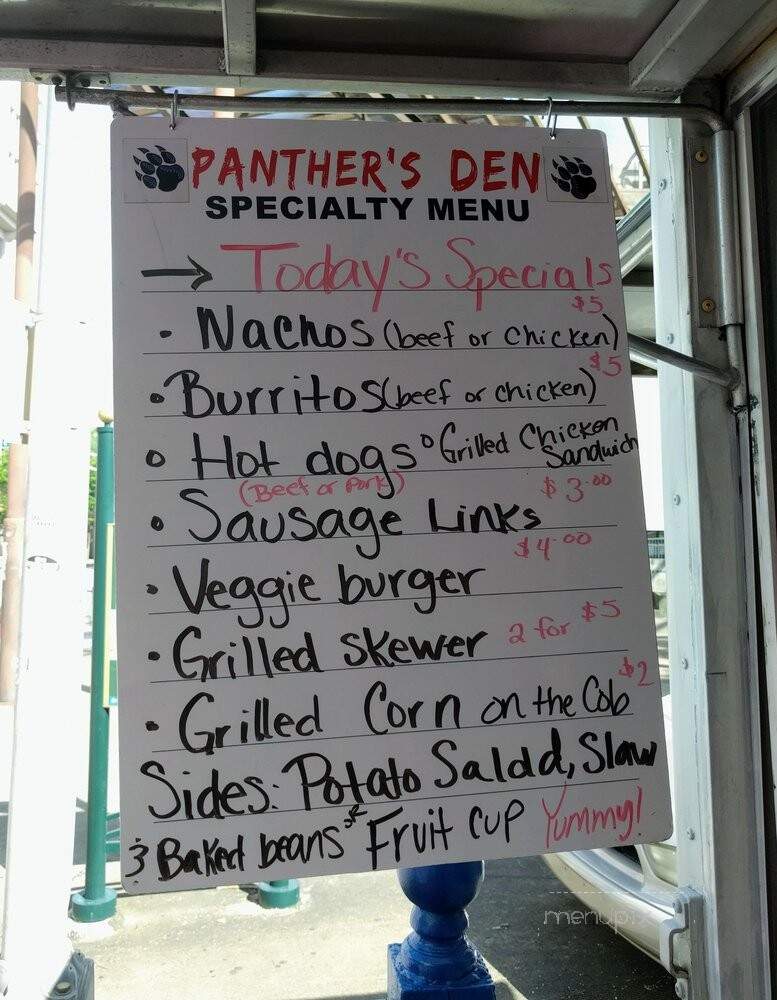 PANTHER'S DEN
SPECIALTY MENU
→ Today's Specials
$5
• Nachos (beef or chicken)
$5
• Burritos (beef or chicken)
• Hot dogs • Grilled Chicken Sandwich
(Beef or Pork) $3.00
• Sausage Links
$4.00
• Veggie burger
• Grilled Skewer 2 for $5
$2
• Grilled Corn on the Cob
Sides: Potato Saladd, Slaw
& Baked beans * Fruit cup Yummy!
menupix